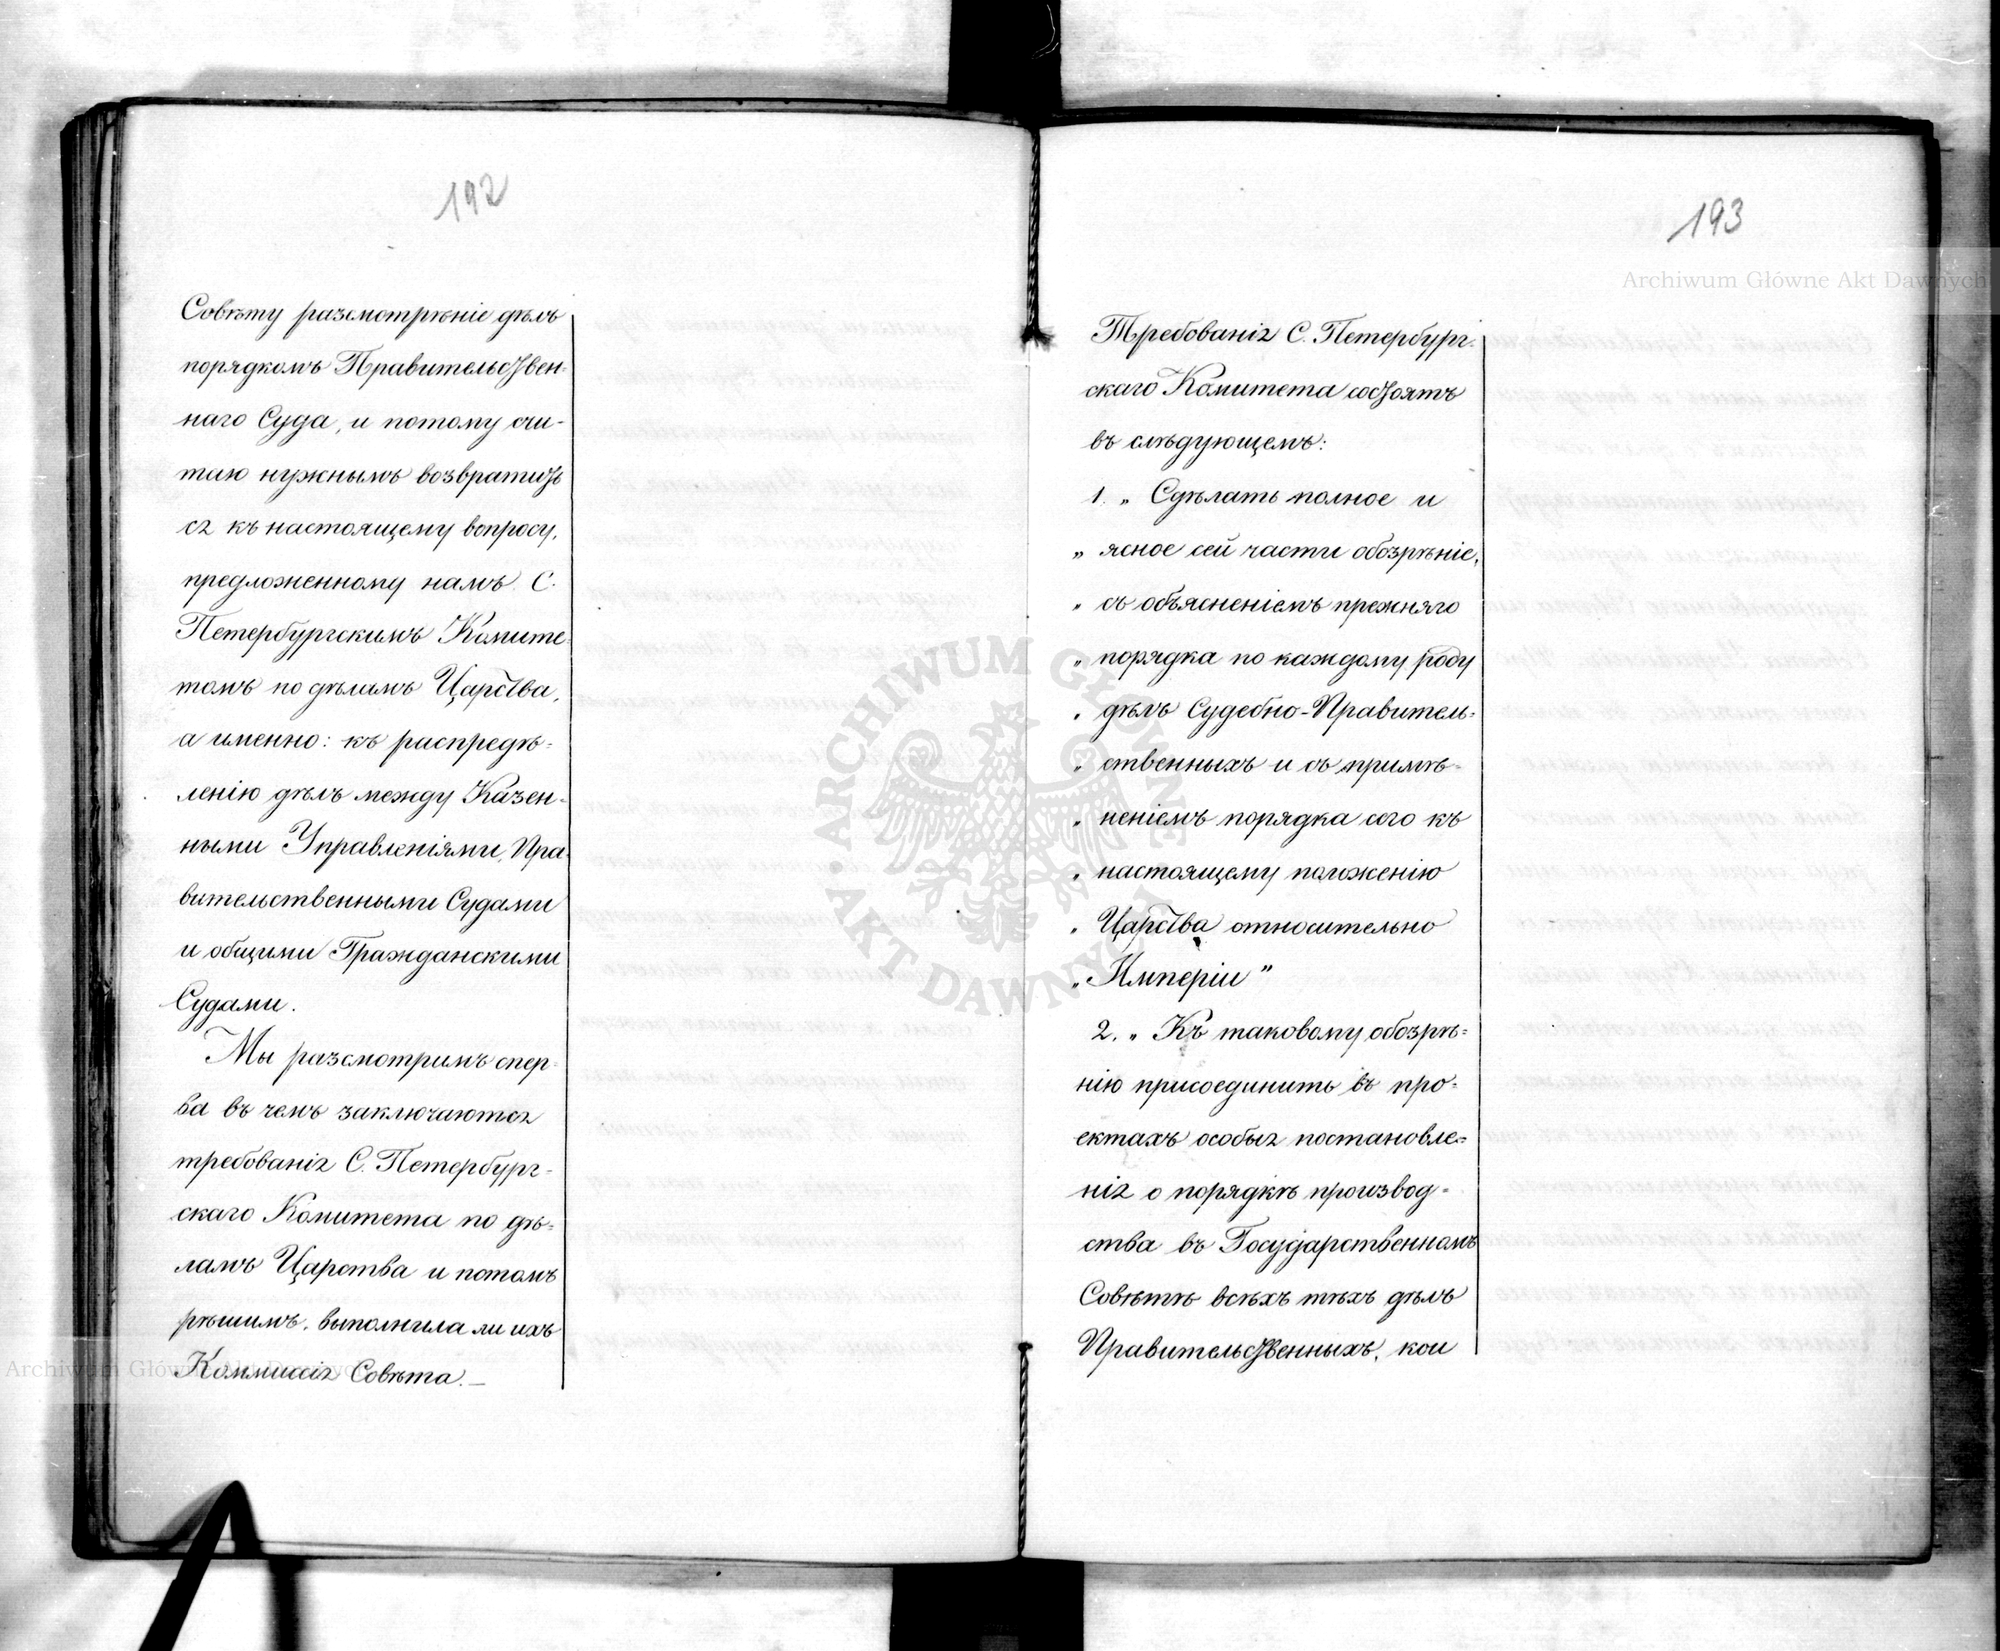 192
Совѣту разсмотрѣніе дѣлъ
порядкомъ Правительствен-
наго Суда, и потому счи-
таю нужнымъ возвратить
ся къ настоящему вопросу,
предложенному намъ С.
Петербургскимъ Комите-
томъ по дѣламъ Царства,
а именно: къ распредѣ-
ленію дѣлъ между Казен-
ными Управленіями, Пра-
вительственными Судами
и общими Гражданскими
Судами.
Мы разсмотримъ спер-
ва въ чемъ заключаются
требованія С. Петербург-
скаго Комитета по дѣ-
ламъ Царства и потомъ
рѣшимъ, выполнила ли ихъ
Коммиссія Совѣта.—
193
Требованія С. Петербург-
скаго Комитета состоятъ
въ слѣдующемъ:
1. „ Сдѣлать полное и
„ ясное сей части обозрѣніе,
„ съ объясненіемъ прежняго
„ порядка по каждому роду
„ дѣлъ Судебно-Правитель-
„ ственныхъ и съ примѣ-
„ неніемъ порядка сего къ
„ настоящему положенію
„ Царства относительно
„ Имперіи”
2. „ Къ таковому обозрѣ-
нію присоединить въ про-
ектахъ особыя постановле-
нія о порядкѣ производ-
ства въ Государственномъ
Совѣтѣ всѣхъ тѣхъ дѣлъ
Правительственныхъ, кои
Archiwum Główne Akt Dawnych
Archiwum Główne Akt Dawnych
ARCHIWUM GŁÓWNE • AKT DAWNYCH •